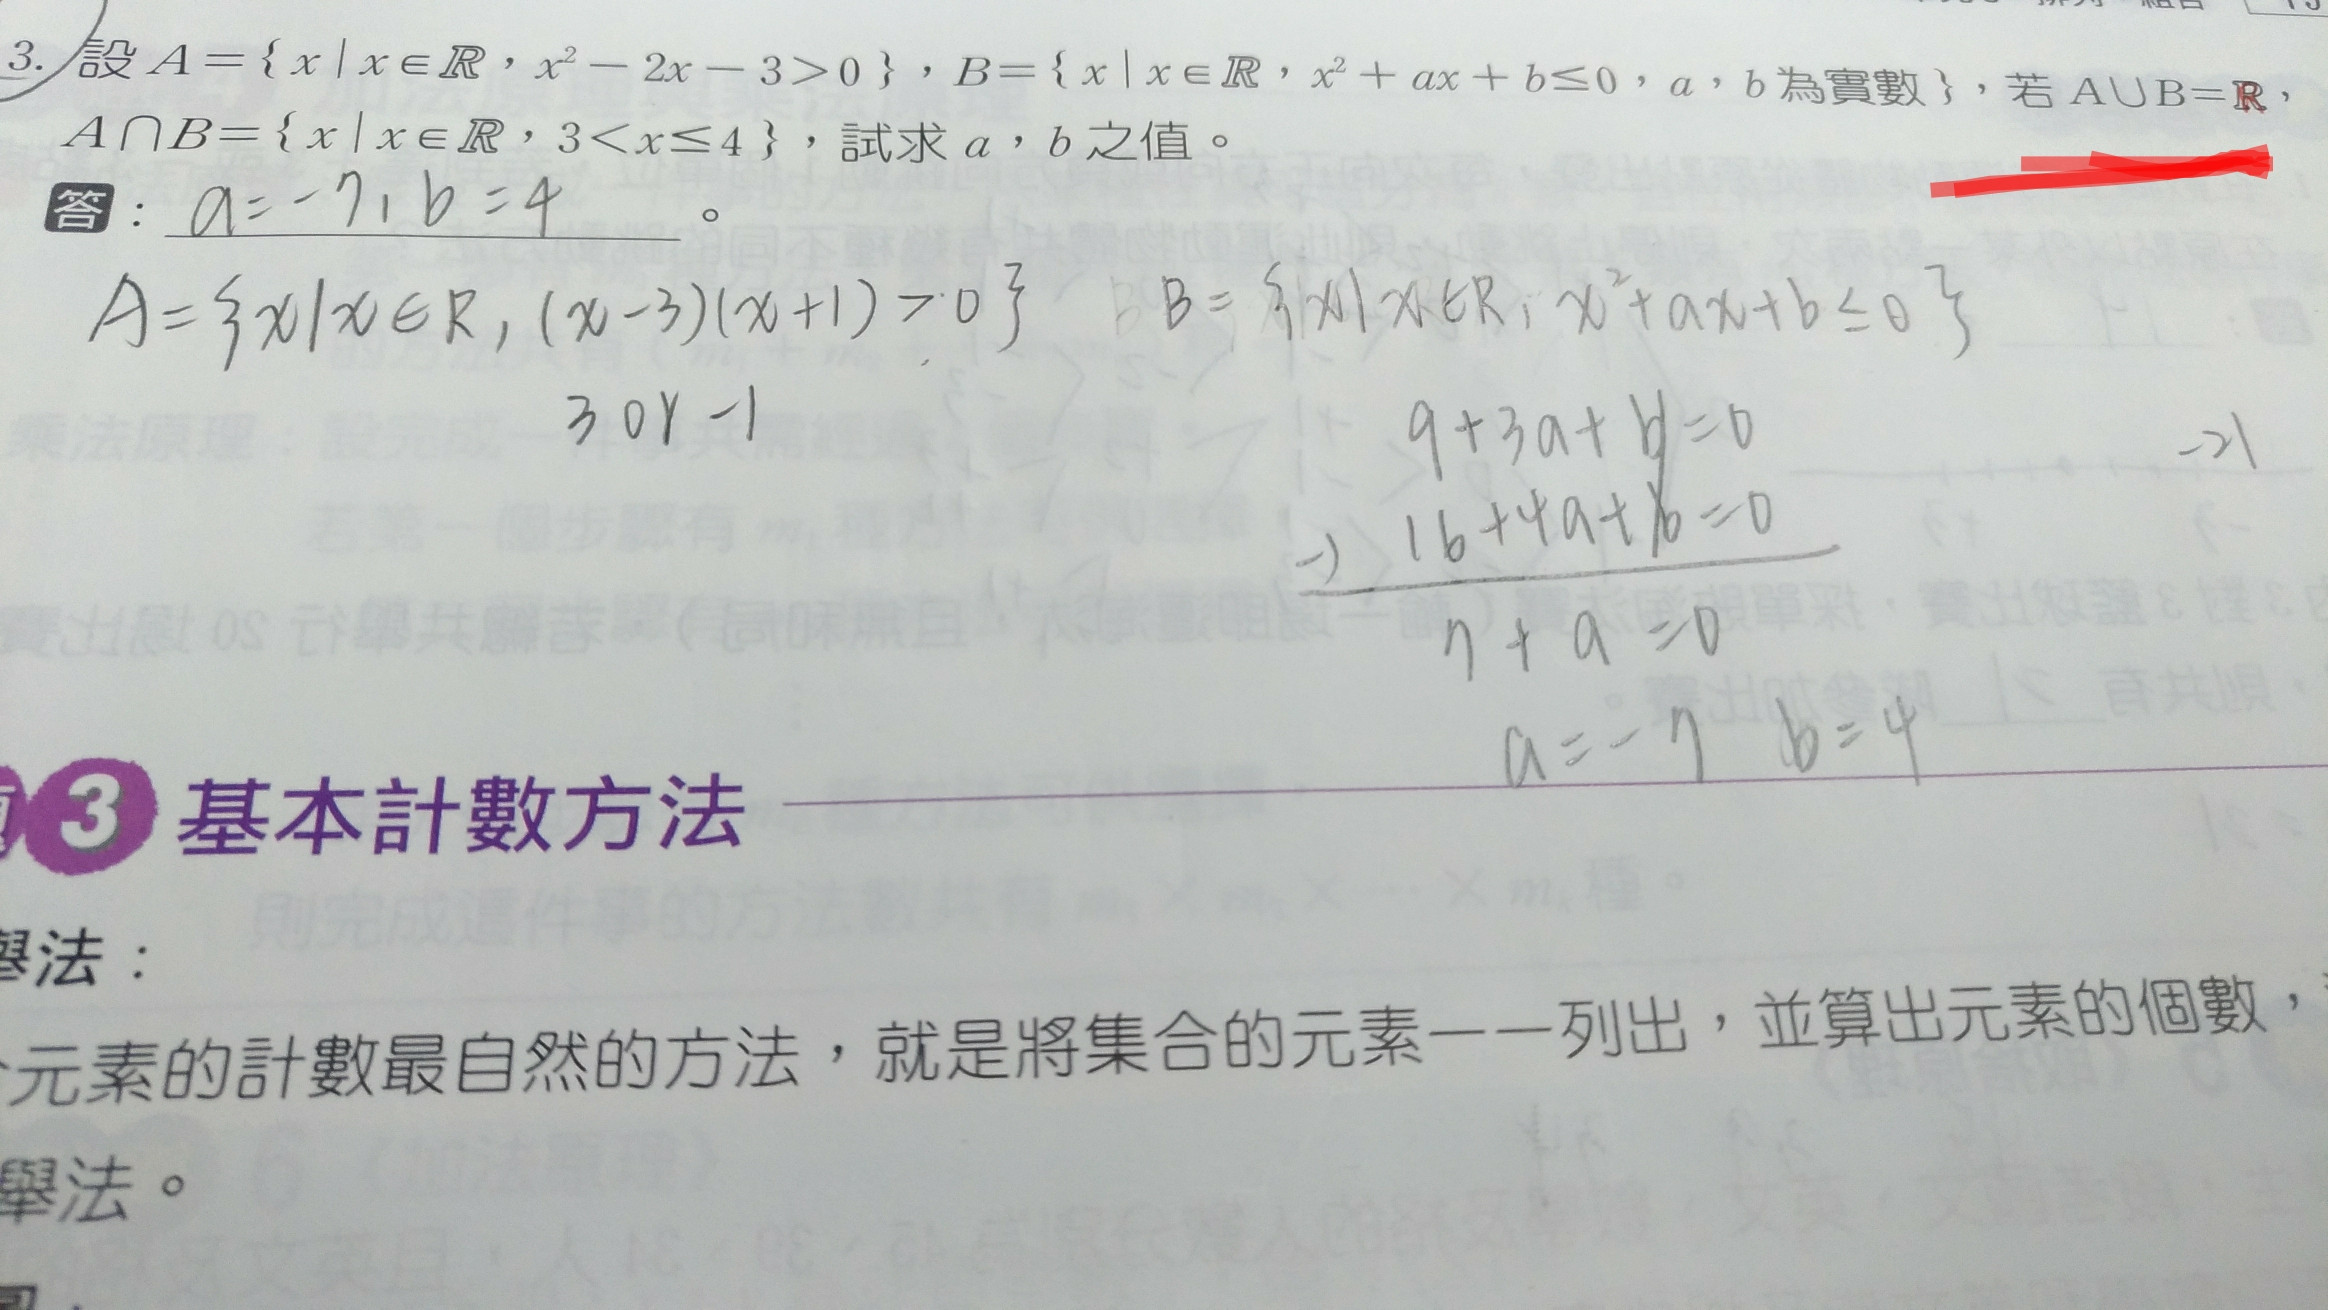 3. 設 A={ x | x∈ℝ，x²－2x－3>0 }，B={ x | x∈ℝ，x²＋ax＋b≤0，a，b 為實數 }，若 A∪B=ℝ，
A∩B={ x | x∈ℝ，3<x≤4 }，試求 a，b 之值。
答：a=-7, b=4。
A={x|x∈R, (x-3)(x+1)>0} B={x|x∈R, x²+ax+b≤0}
3 or -1
9+3a+b=0
-) 16+4a+b=0
7+a=0
a=-7 b=4
3 基本計數方法
舉法：
元素的計數最自然的方法，就是將集合的元素一一列出，並算出元素的個數，
舉法。